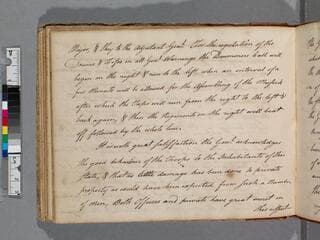 Major, & they to the Adjutant Genl. For the regulation of the
Drums & Fifes in all Genl. Warnings the Drummers Call will
begin on the right & run to the left when an interval of a
few Minutes will be allowed for the Assembling of the Musick
after which the Taps will run from the right to the left &
back again, & then the Regiments on the right will beat
off followed by the whole line.
It is with great satisfaction the Genl. acknowledges
the good behaviour of the Troops to the Inhabitants of this
State, & that as little damage has been done to private
property as could have been expected from such a Number
of Men, Both Officers and privates have great merit in
this respect